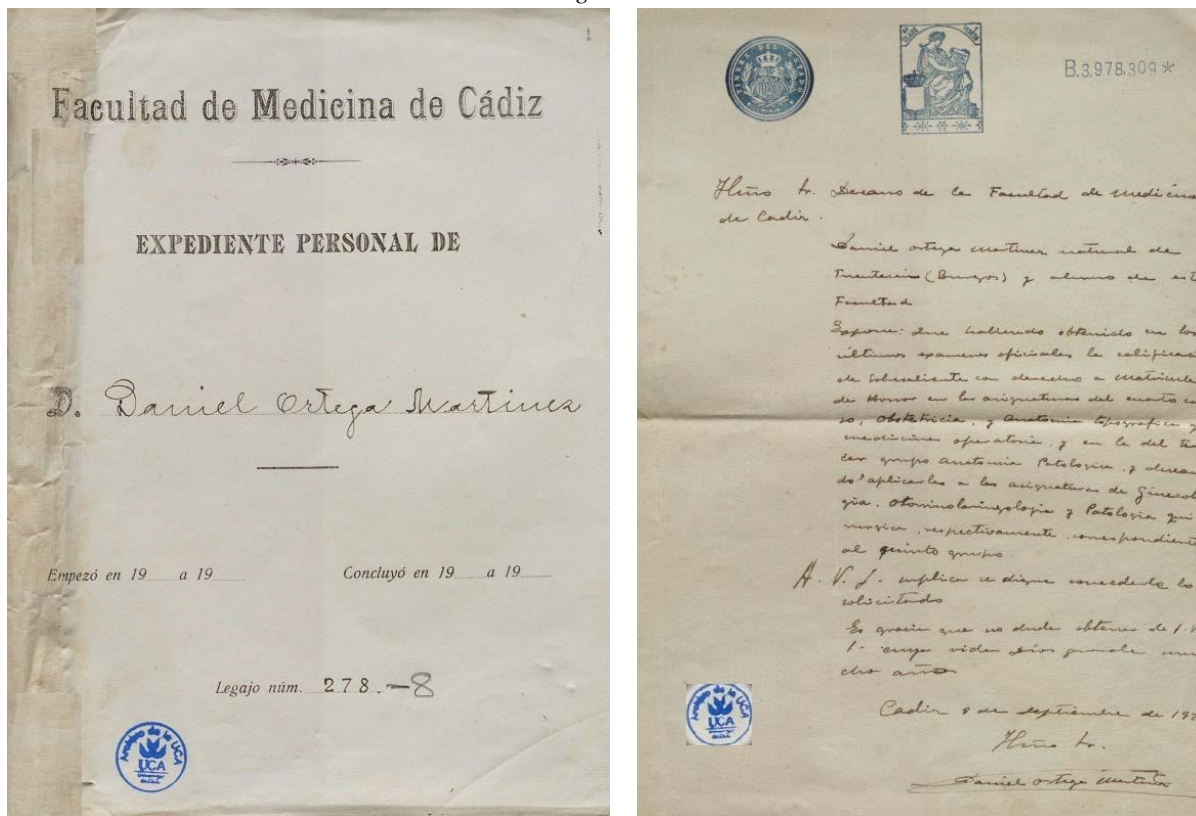 1
Facultad de Medicina de Cádiz
EXPEDIENTE PERSONAL DE
D. Daniel Ortega Martinez
Empezó en 19 a 19
Concluyó en 19 a 19
Legajo núm. 278.-8
Archivo de la UCA
UCA
TIMBRE DEL ESTADO
B.3,978,309*
Ilmo Sr. Decano de la Facultad de Medicina
de Cadiz.
Daniel Ortega Martinez natural de
Fuentecen (Burgos) y alumno de est
Facultad
Expone: Que habiendo obtenido en los
ultimos examenes oficiales la calificaci
de Sobresaliente con derecho a Matricula
de Honor en las asignaturas del cuarto cu
so, Obstetricia, y Anatomia topografica y
medicina operatoria, y en la del te
cer grupo Anatomia Patologica, y desean
do aplicarlas a las asignaturas de Ginecol
gia, Otorrinolaringologia y Patologia qui
rurgica, respectivamente correspondiente
al quinto grupo.
A. V. I. suplica se digne concederle lo
solicitado
Es gracia que no duda obtener de V.
I. cuya vida Dios guarde mu
cho años
Cadiz 8 de septiembre de 19
Ilmo Sr.
Daniel Ortega Martinez
Archivo de la UCA
UCA